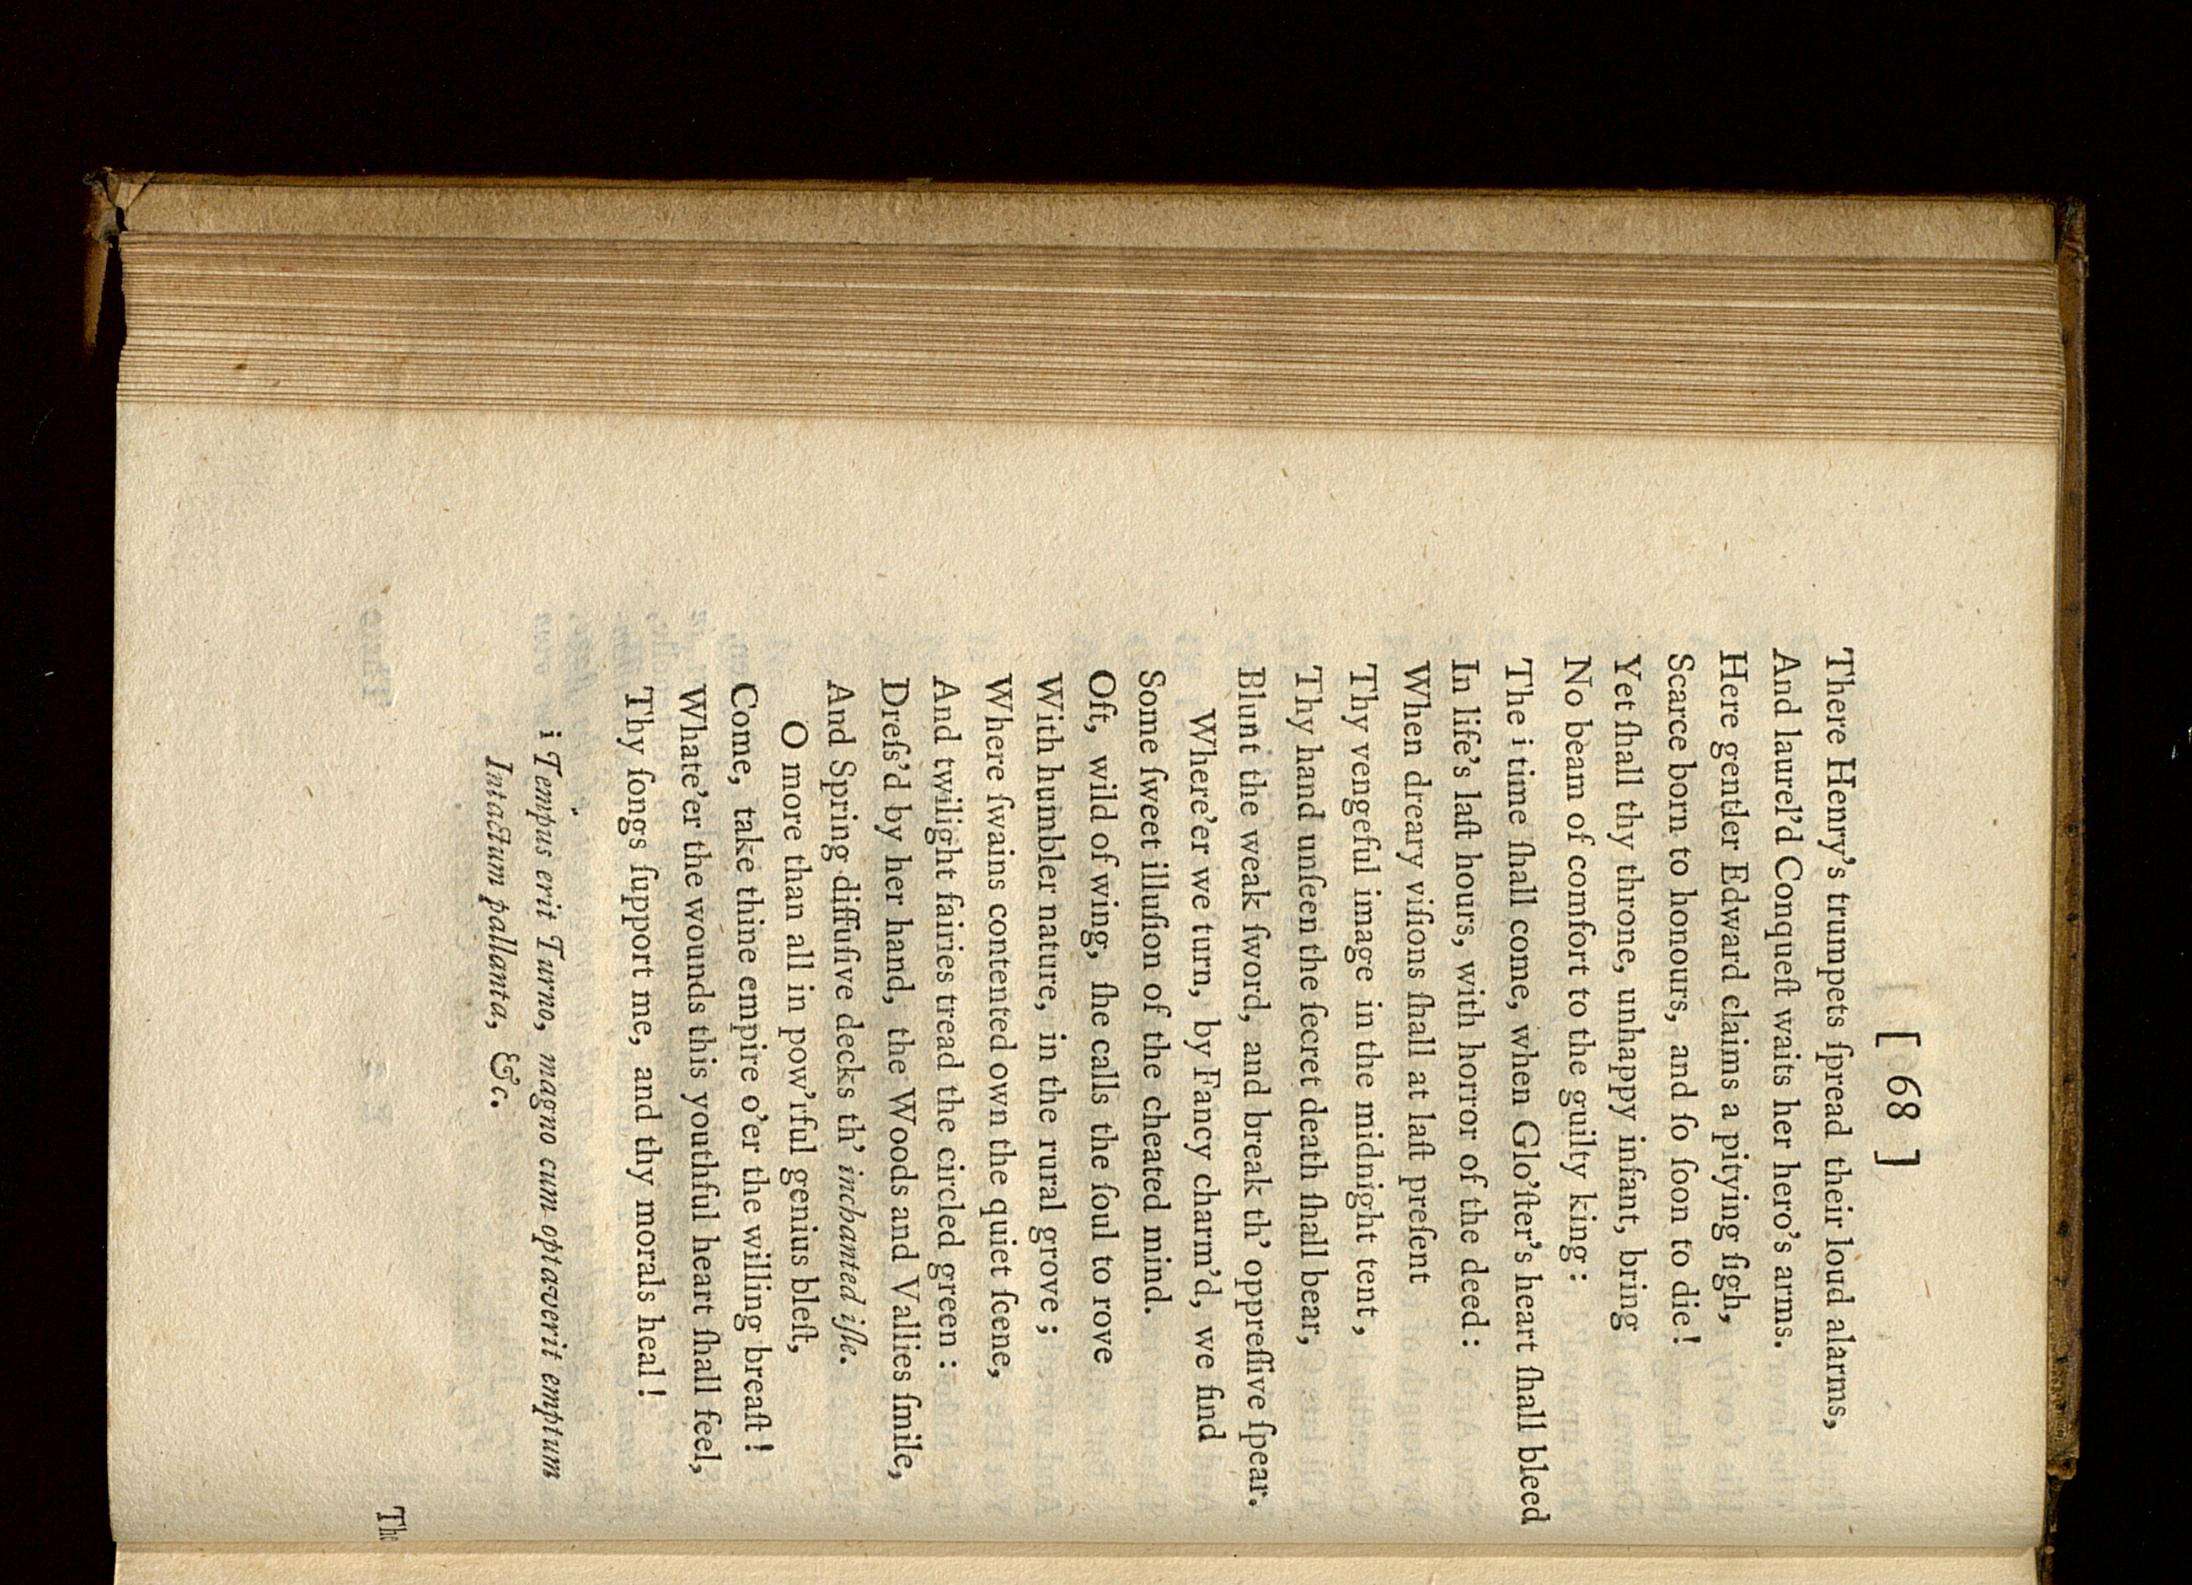 [ 68 ]
There Henry's trumpets ſpread their loud alarms,
And laurel'd Conqueſt waits her hero's arms.
Here gentler Edward claims a pitying ſigh,
Scarce born to honours, and ſo ſoon to die!
Yet ſhall thy throne, unhappy infant, bring
No beam of comfort to the guilty king:
The i time ſhall come, when Glo'ſter's heart ſhall bleed
In life's laſt hours, with horror of the deed:
When dreary viſions ſhall at laſt preſent
Thy vengeful image in the midnight tent,
Thy hand unſeen the ſecret death ſhall bear,
Blunt the weak ſword, and break th' oppreſſive ſpear.
Where'er we turn, by Fancy charm'd, we find
Some ſweet illuſion of the cheated mind.
Oft, wild of wing, ſhe calls the ſoul to rove
With humbler nature, in the rural grove;
Where ſwains contented own the quiet ſcene,
And twilight fairies tread the circled green:
Dreſs'd by her hand, the Woods and Vallies ſmile,
And Spring diffuſive decks th' inchanted iſle.
O more than all in pow'rful genius bleſt,
Come, take thine empire o'er the willing breaſt!
Whate'er the wounds this youthful heart ſhall feel,
Thy ſongs ſupport me, and thy morals heal!
i Tempus erit Turno, magno cum optaverit emptum
Intactum pallanta, &c.
The